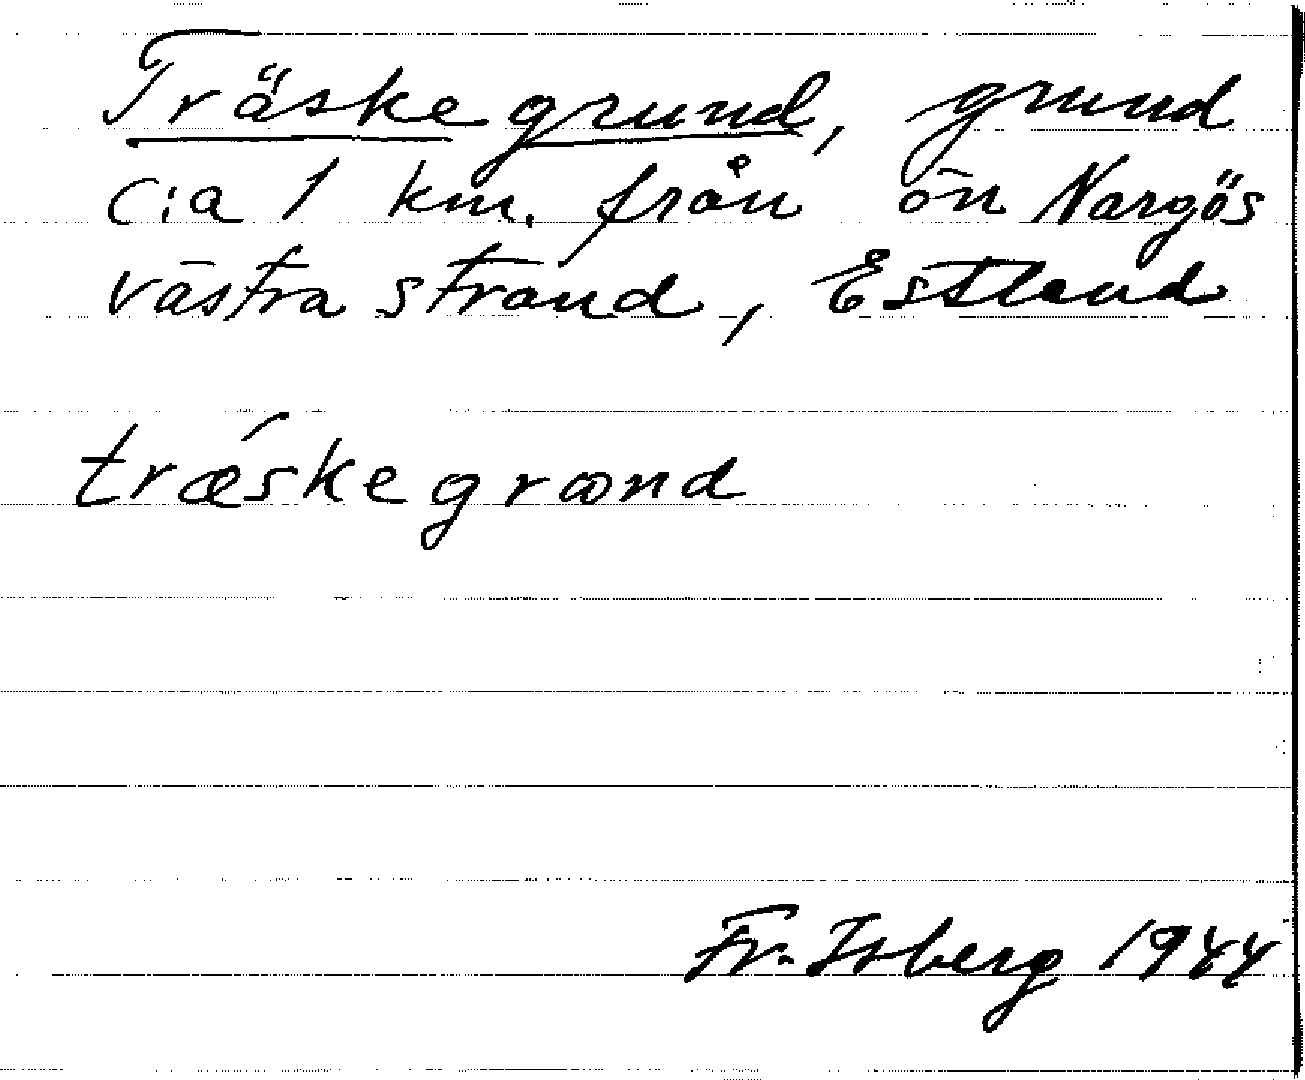 Träskegrund, grund
c:a 1 km. från ön Nargös
västra strand, Estland
trǽskegrꝏnd
Fr. Isberg 1944